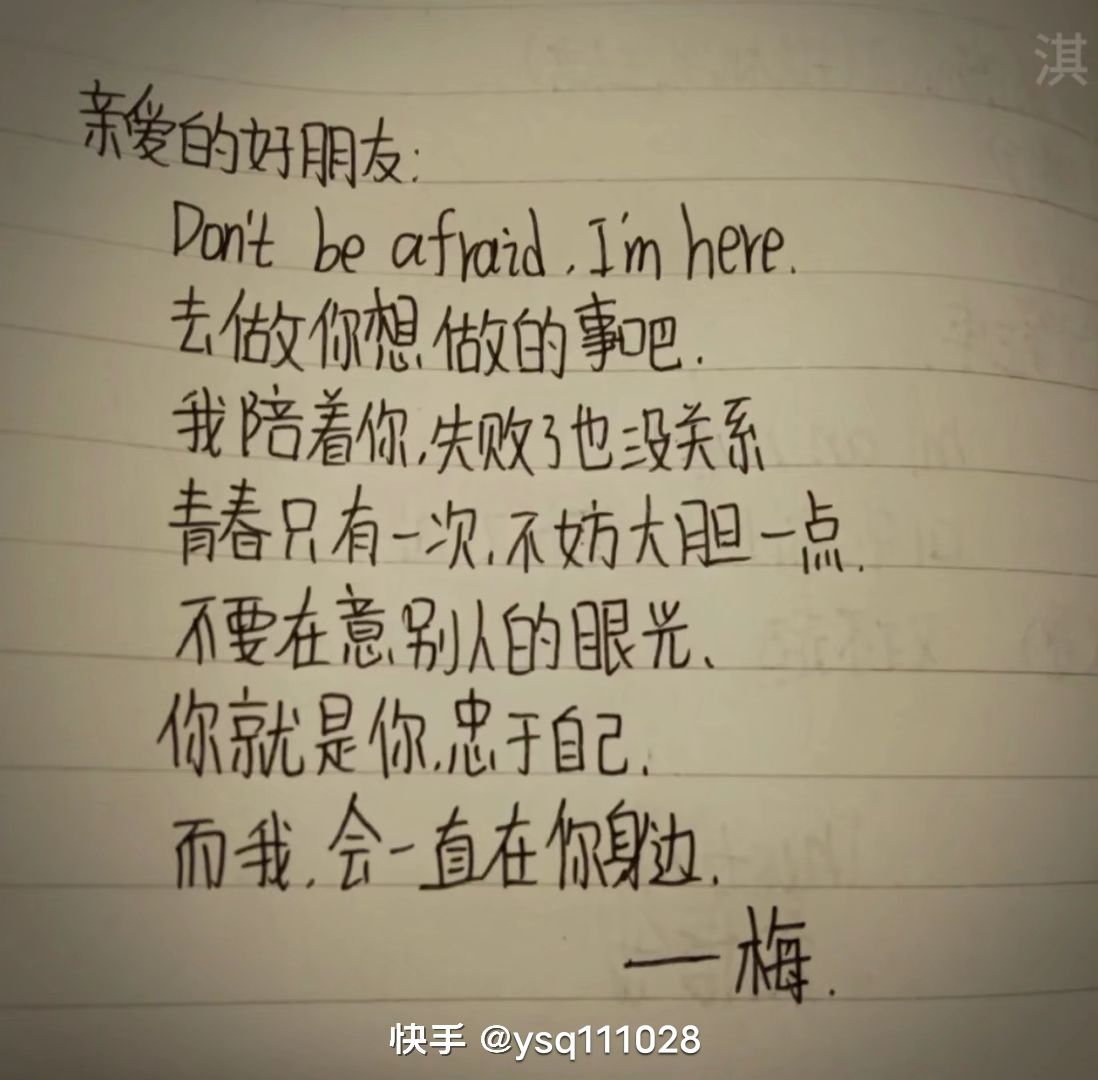 淇
亲爱的好朋友:
Don't be afraid, I'm here.
去做你想做的事吧.
我陪着你,失败了也没关系
青春只有一次,不妨大胆一点.
不要在意别人的眼光、
你就是你,忠于自己.
而我,会一直在你身边.
——梅.
快手 @ysq111028